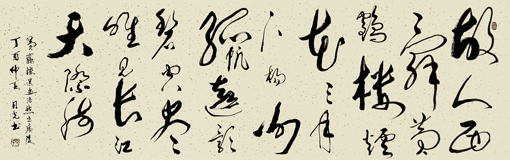 故人西
辞黄
鹤楼烟
花三月
下扬州
孤帆远影
碧空尽
唯见长江
天际流
黄鹤楼送孟浩然之广陵
丁酉仲夏 月光书